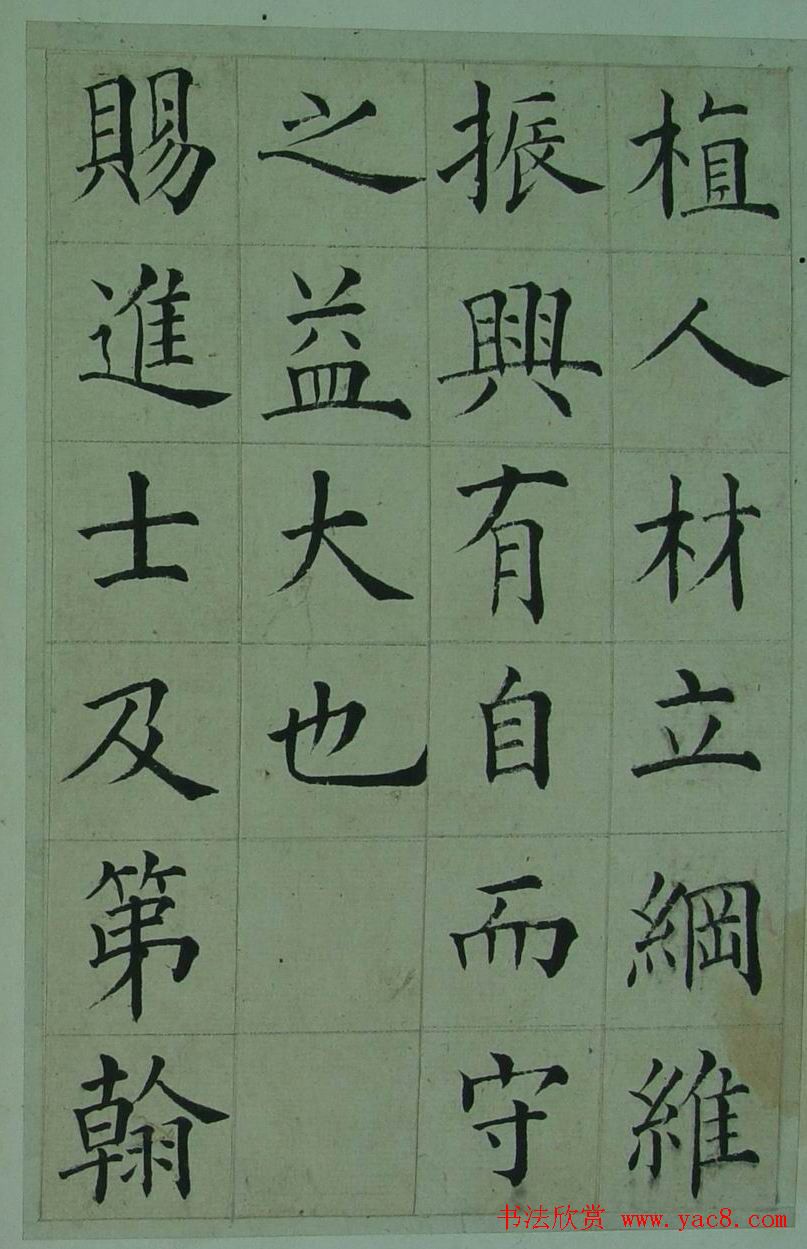 植人材立綱維
振興有自而守
之益大也
賜進士及第翰
书法欣赏 www.yac8.com